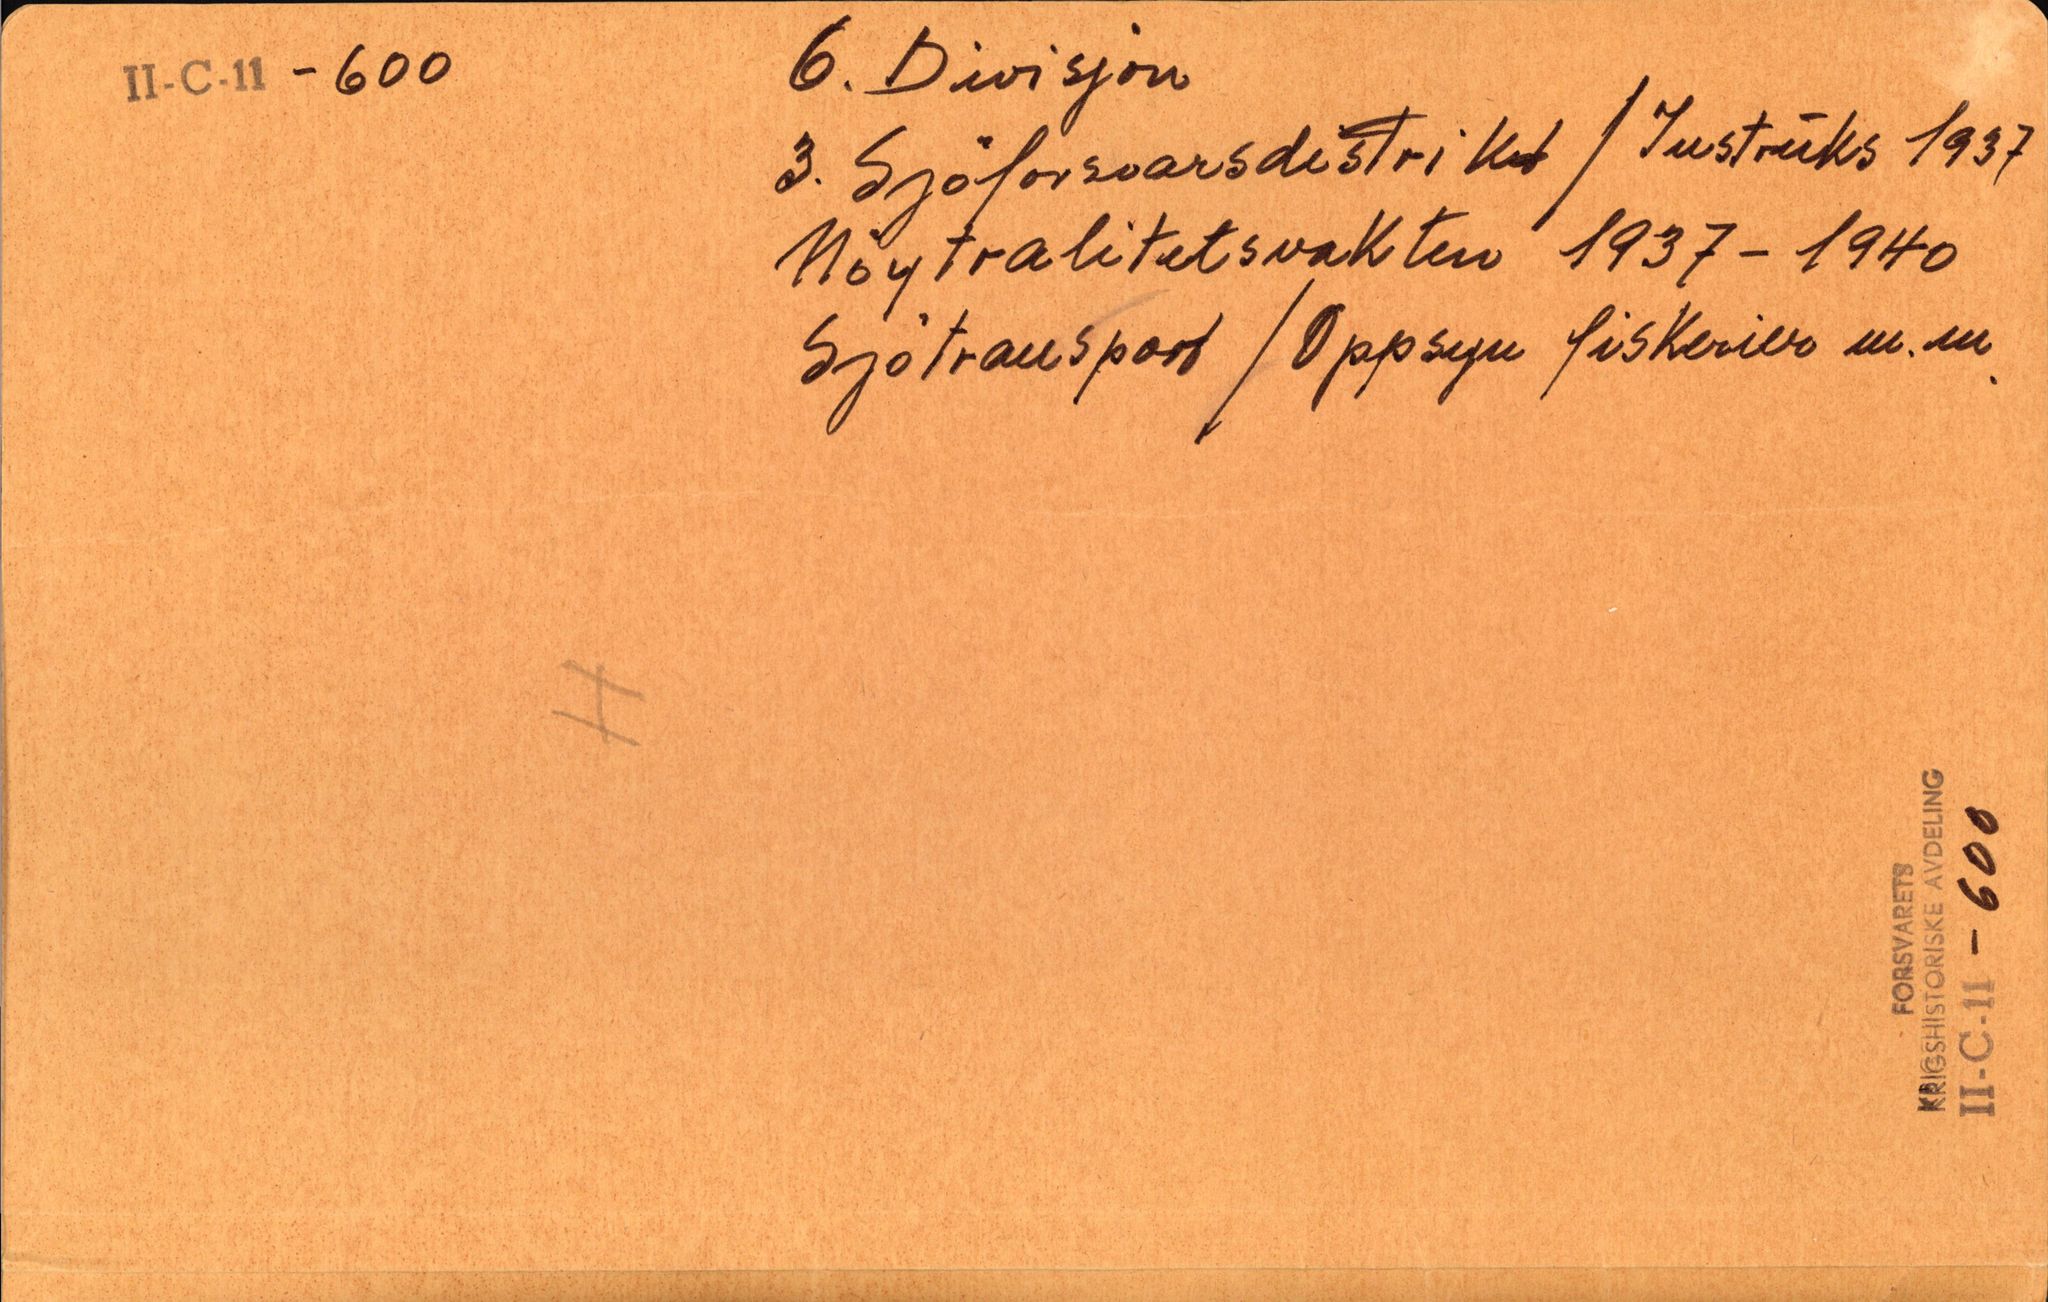 II-C-11 - 600
6. Divisjon
3. Sjöforsvarsdistrikt / Instruks 1937
Nöytralitetsvakten 1937 - 1940
Sjötransport / Oppsyn fiskerier m.m.
H
FORSVARETS
KRIGSHISTORISKE AVDELING
II-C-11 - 600